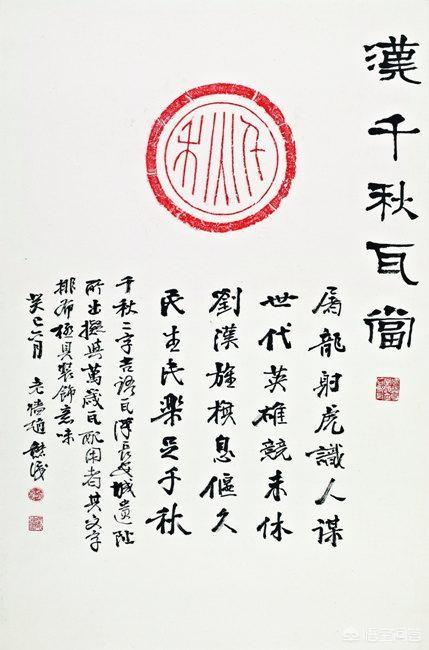 漢千秋瓦當
千秋
屠龍射虎識人謀
世代英雄競未休
劉漢旌旗息偃久
民生民樂足千秋
千秋二字吉語瓦漢長安城遺址
所出擬與萬歲瓦配用者其文字
排布極具裝飾意味
癸巳六月 老墻趙熊識
悟空问答